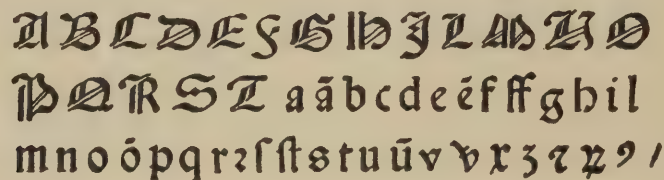 A B C D E F G H J L M N O
P Q R S T a ā b c d e ē f ff g h i l
m n o ō p q r ꝛ ſ ſt s t u ū v v x ʒ ⁊ ꝝ ꝯ /